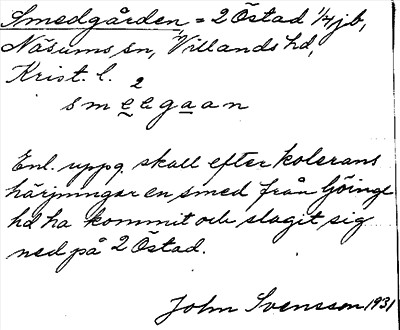 Smedgården = 2 Östad 1/4 jb,
Näsums sn, Villands hd,
Krist. l.
2
smeegaan
Enl. uppg. skall efter kolerans
härjningar en smed från Göinge
hd ha kommit och slagit sig
ned på 2 Östad.
John Svensson 1931